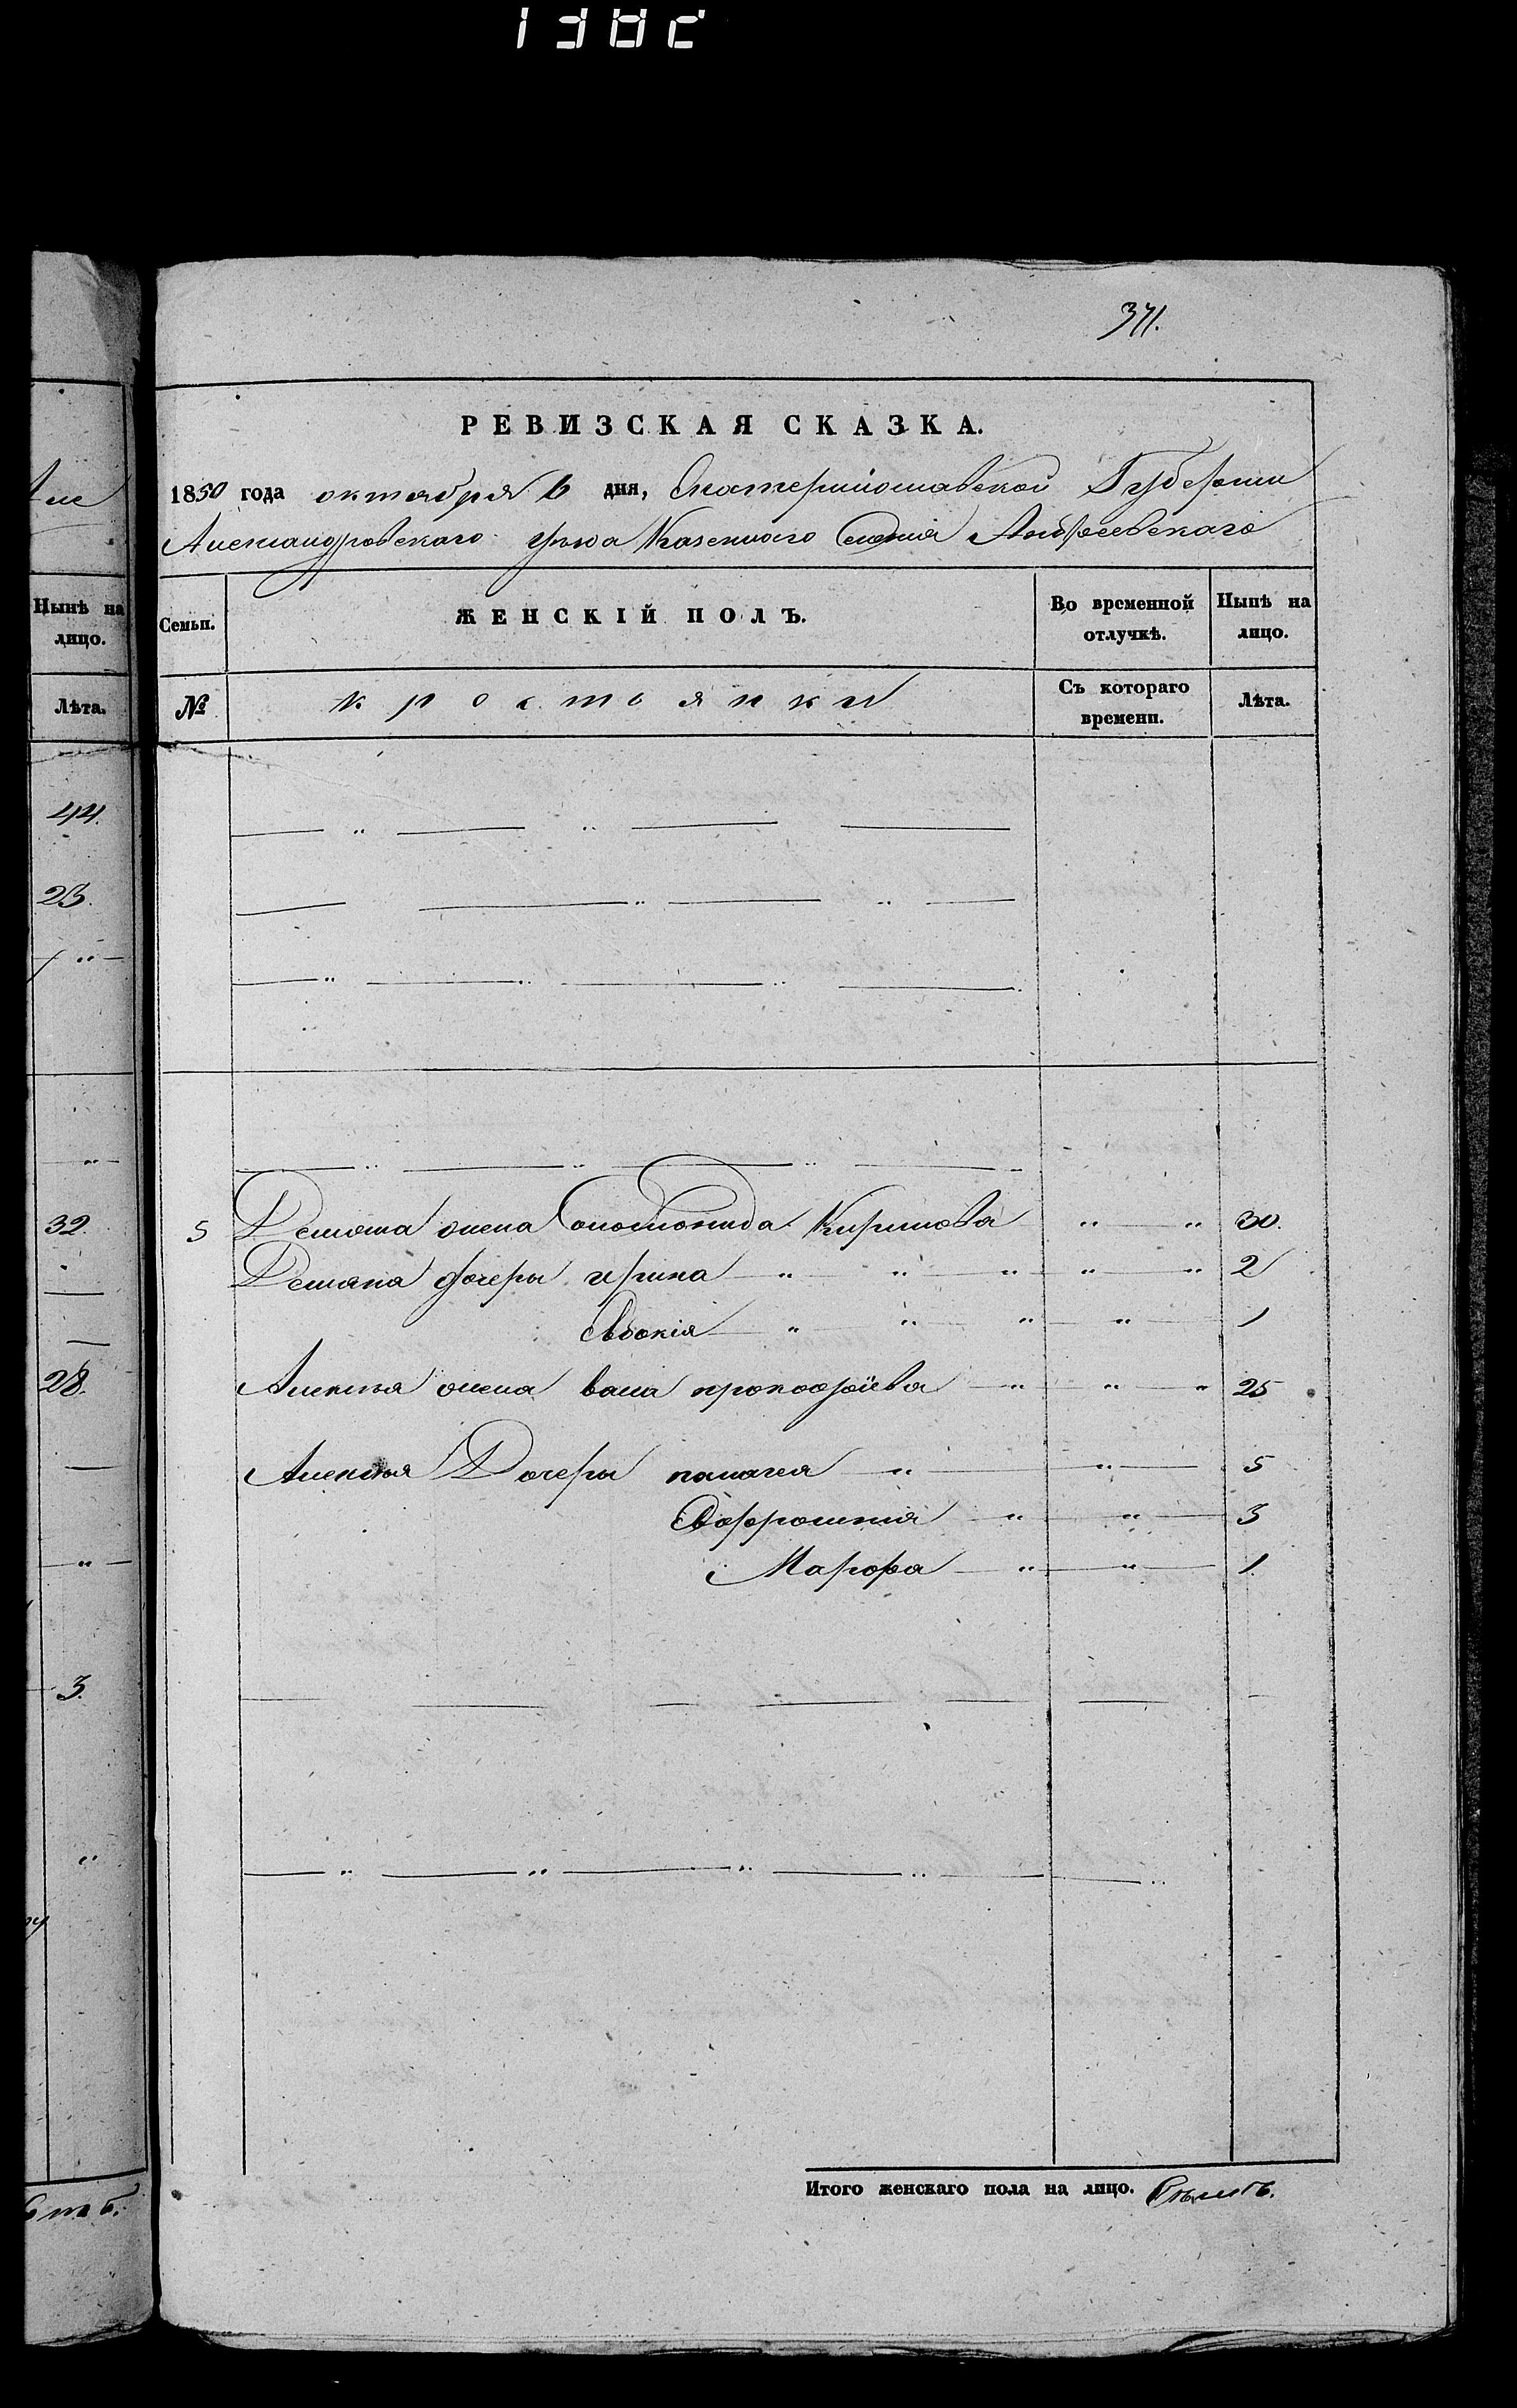 371.
РЕВИЗСКАЯ СКАЗКА.
1850 года октября 6 дня, Екатеринославской Губернии
Александровскаго уѣзда Казеннаго Селенія Андреевскаго
Нынѣ на лицо.
Лѣта.
44.
23.
32.
28.
3.
Семьи. ЖЕНСКІЙ ПОЛЪ. Во временной отлучкѣ. Нынѣ на лицо.
№ крестьянки Съ котораго времени. Лѣта.
5 Демяна жена Соломонида Кирилова " " 30.
Демяна дочеры ирина " " " " " 2
Евдокія " " " " 1
Алексѣя жена васа прокофьева " " " 25
Алексѣя Дочеры палагея " " 5
Евфросинія " " 3
Марфа " " 1.
Итого женскаго пола на лицо. Семь.